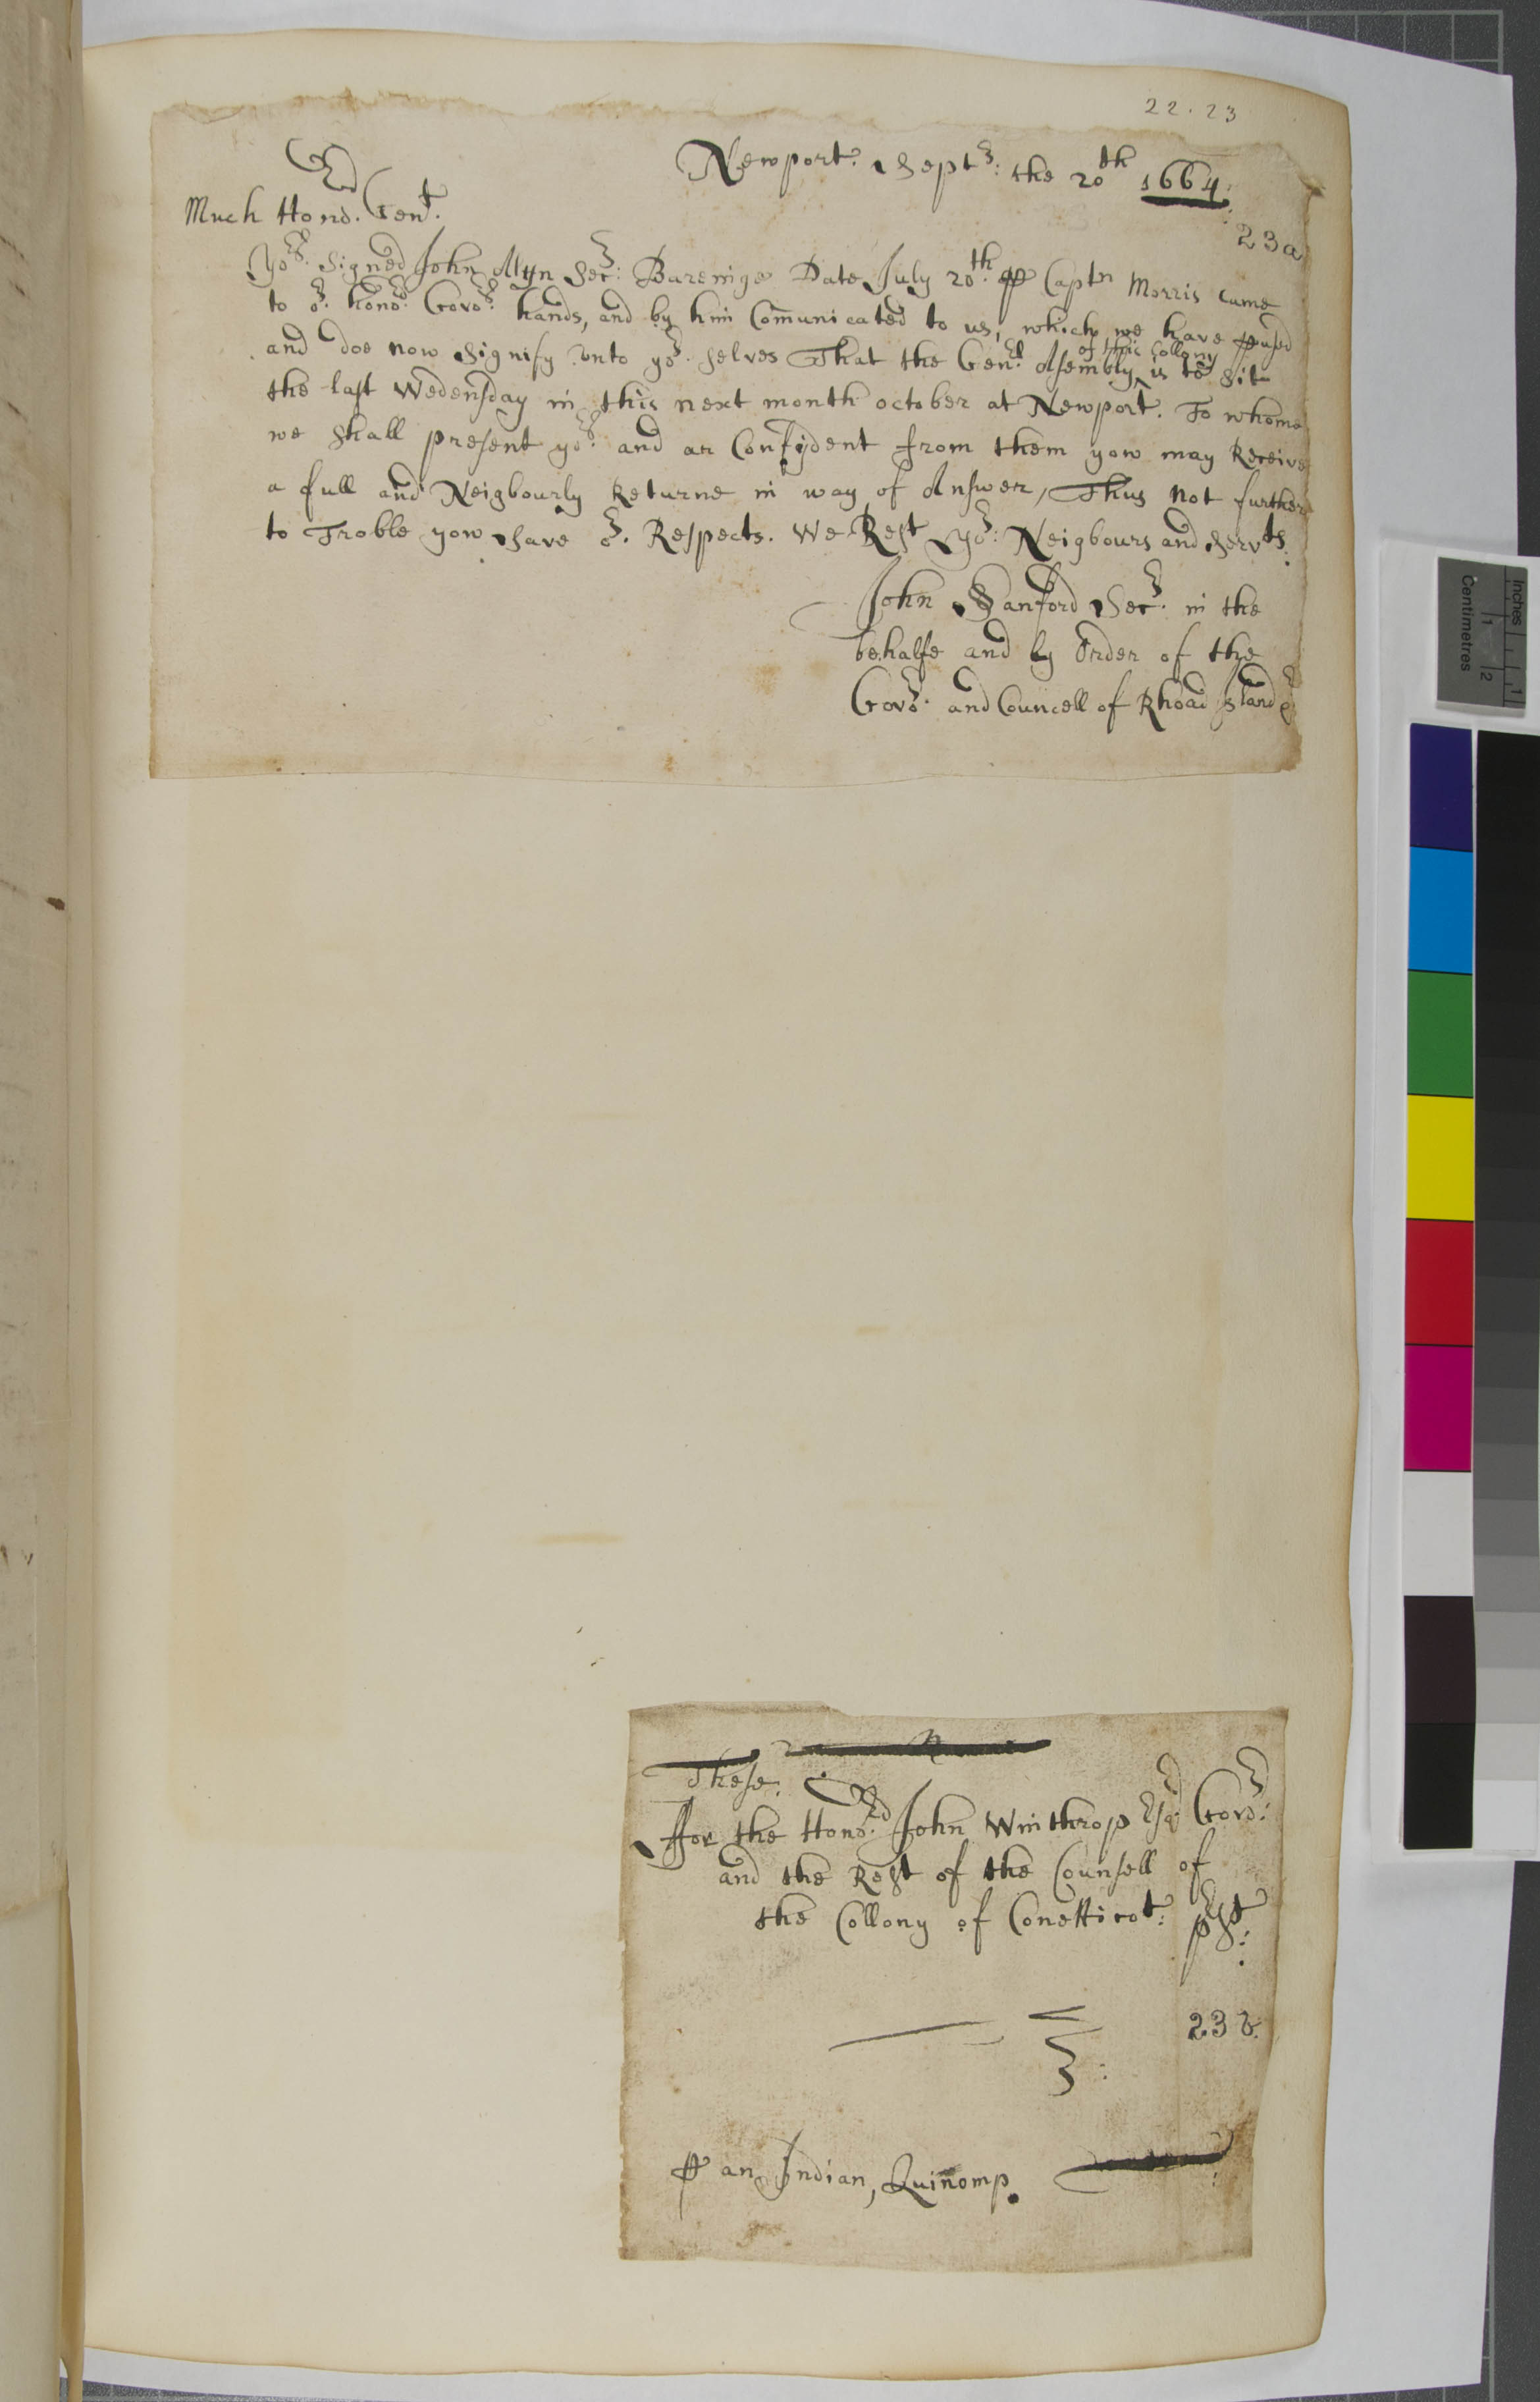 22.23
Newport. Septr: the 20th 1664:
23a
Much Hond. Gent.
Yors. Signed John Allyn Secr: Bareinge Date July 20th. p Captn Morris came
to or. honord. Govor. hands, and by him Comunicated to us, which we have pused
and doe now signify unto yor. selves That the Genll Asembly of this Collony is to sit
the last Wedensday in this next month october at Newport. To whome
we shall present yors. and ar Confydent from them yow may Receive
a full and Neigbourly Returne in way of Answer, Thus not further
to Troble yow save or. Respects. We Rest yor: Neigbours and servts:
John Sanford Secr. in the
behalfe and by order of the
Govor. and Councell of Rhoad Island &c
These.
For the Honord. John Winthrop Esqr Govor:
and the Rest of the Counsell of
the Collony of Conetticot: psnt:
23 b.
p an Indian, Quinomp.
Inches
Centimetres
1
2
1